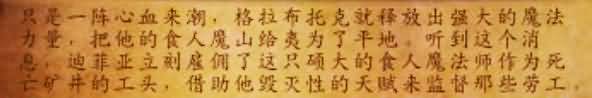 只是一阵心血来潮，格拉布托克就释放出强大的魔法
力量，把他的食人魔山给夷为了平地。听到这个消
息，迪菲亚立刻雇佣了这只硕大的食人魔法师作为死
亡矿井的工头，借助他毁灭性的天赋来监督那些劳工。